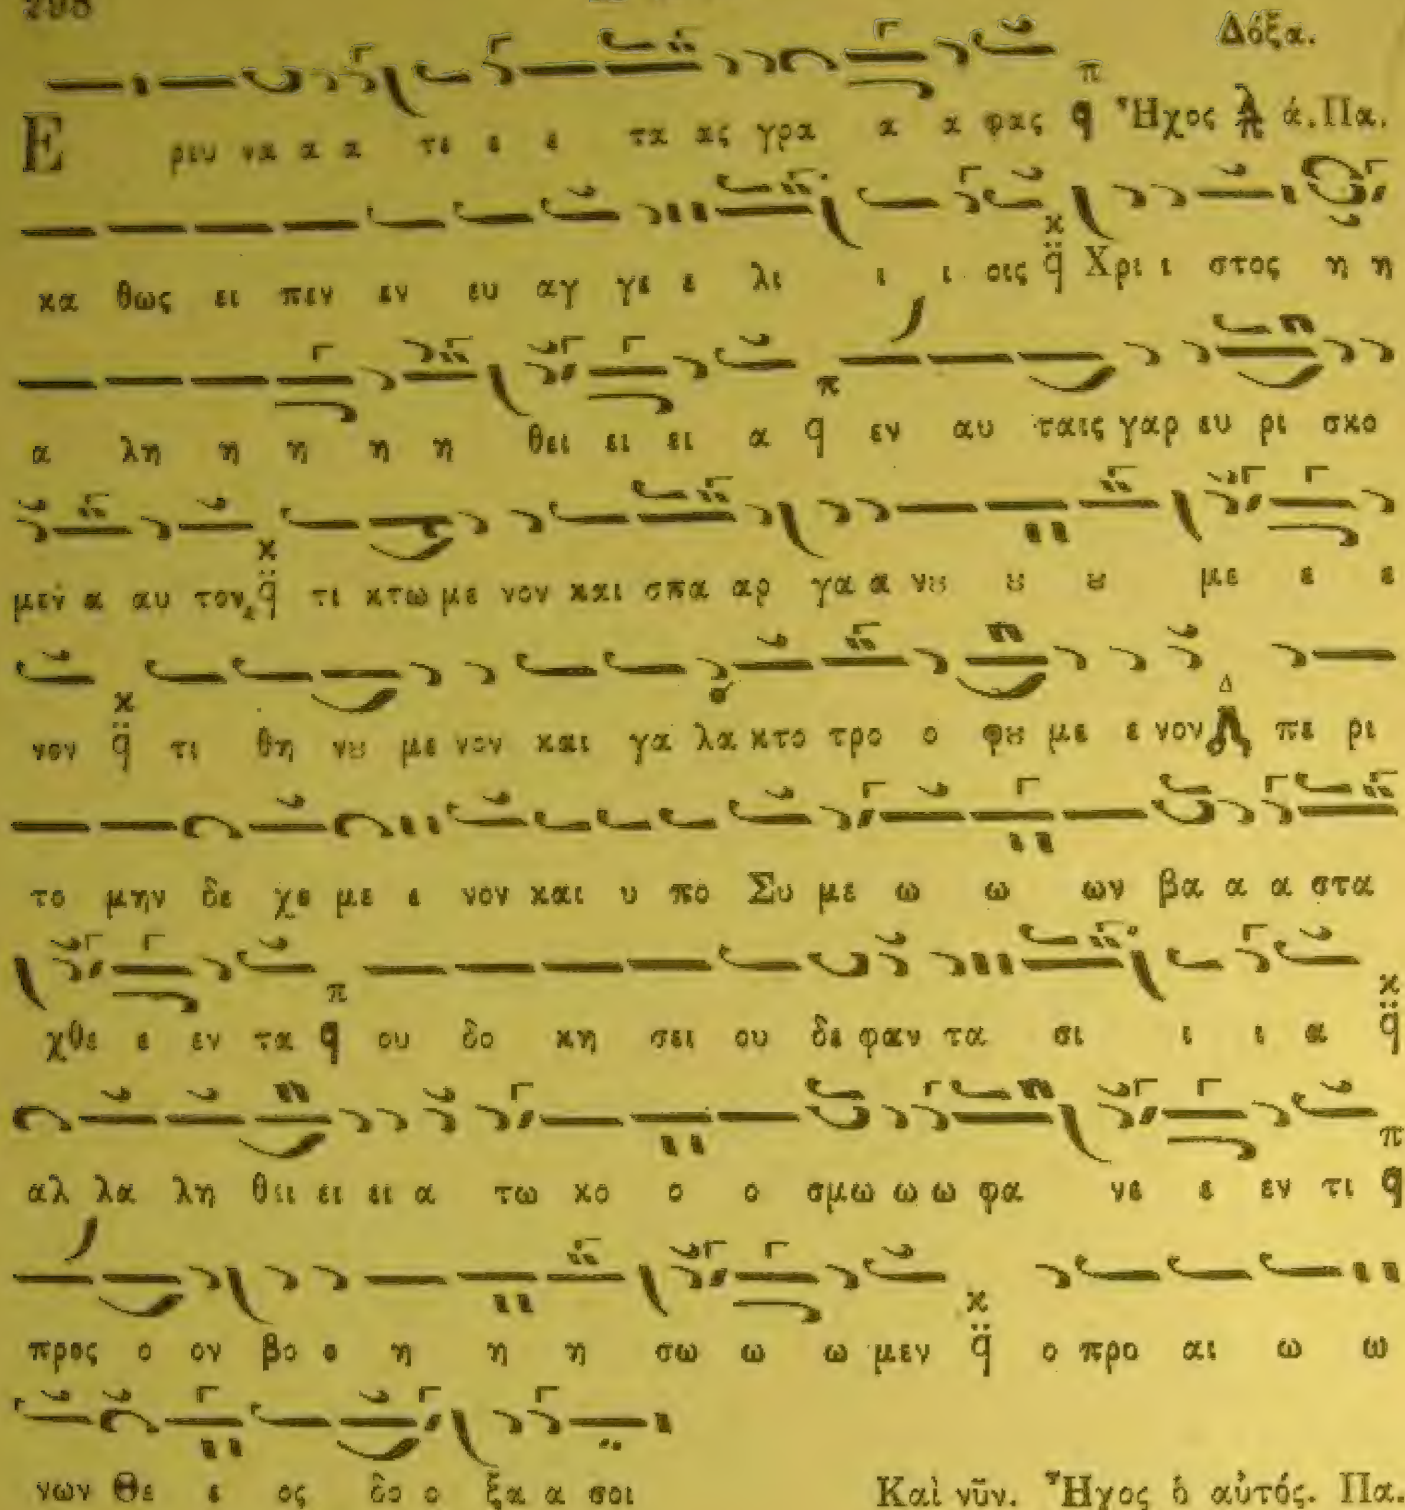 298
Δόξα.
Ε ριυ να α α τε ε ε τα ας γρα α α φας Ἦχος ά. Πα.
κα θως ει πεν εν ευ αγ γε ε λι ι ι οις Χρι ι στος η η
α λη η η η η θει ει ει α εν αυ ταις γαρ ευ ρι σκο
μεν α αυ τον, τι κτω με νον και σπα αρ γα α νȣ ȣ ȣ με ε ε
νον τι θη νȣ με νον και γα λα κτο τρο ο φȣ με ε νον πε ρι
το μην δε χο με ε νον και υ πο Συ με ω ω ων βα α α στα
χθε ε εν τα ου δο κη σει ου δε φαν τα σι ι ι α
αλ λα λη θει ει ει α τω κο ο ο σμω ω ω φα νε ε εν τι
προς ο ον βο ο η η η σω ω ω μεν ο προ αι ω ω
νων Θε ε ος δο ο ξα α σοι
Καὶ νῦν. Ἦχος ὁ αὐτός. Πα.